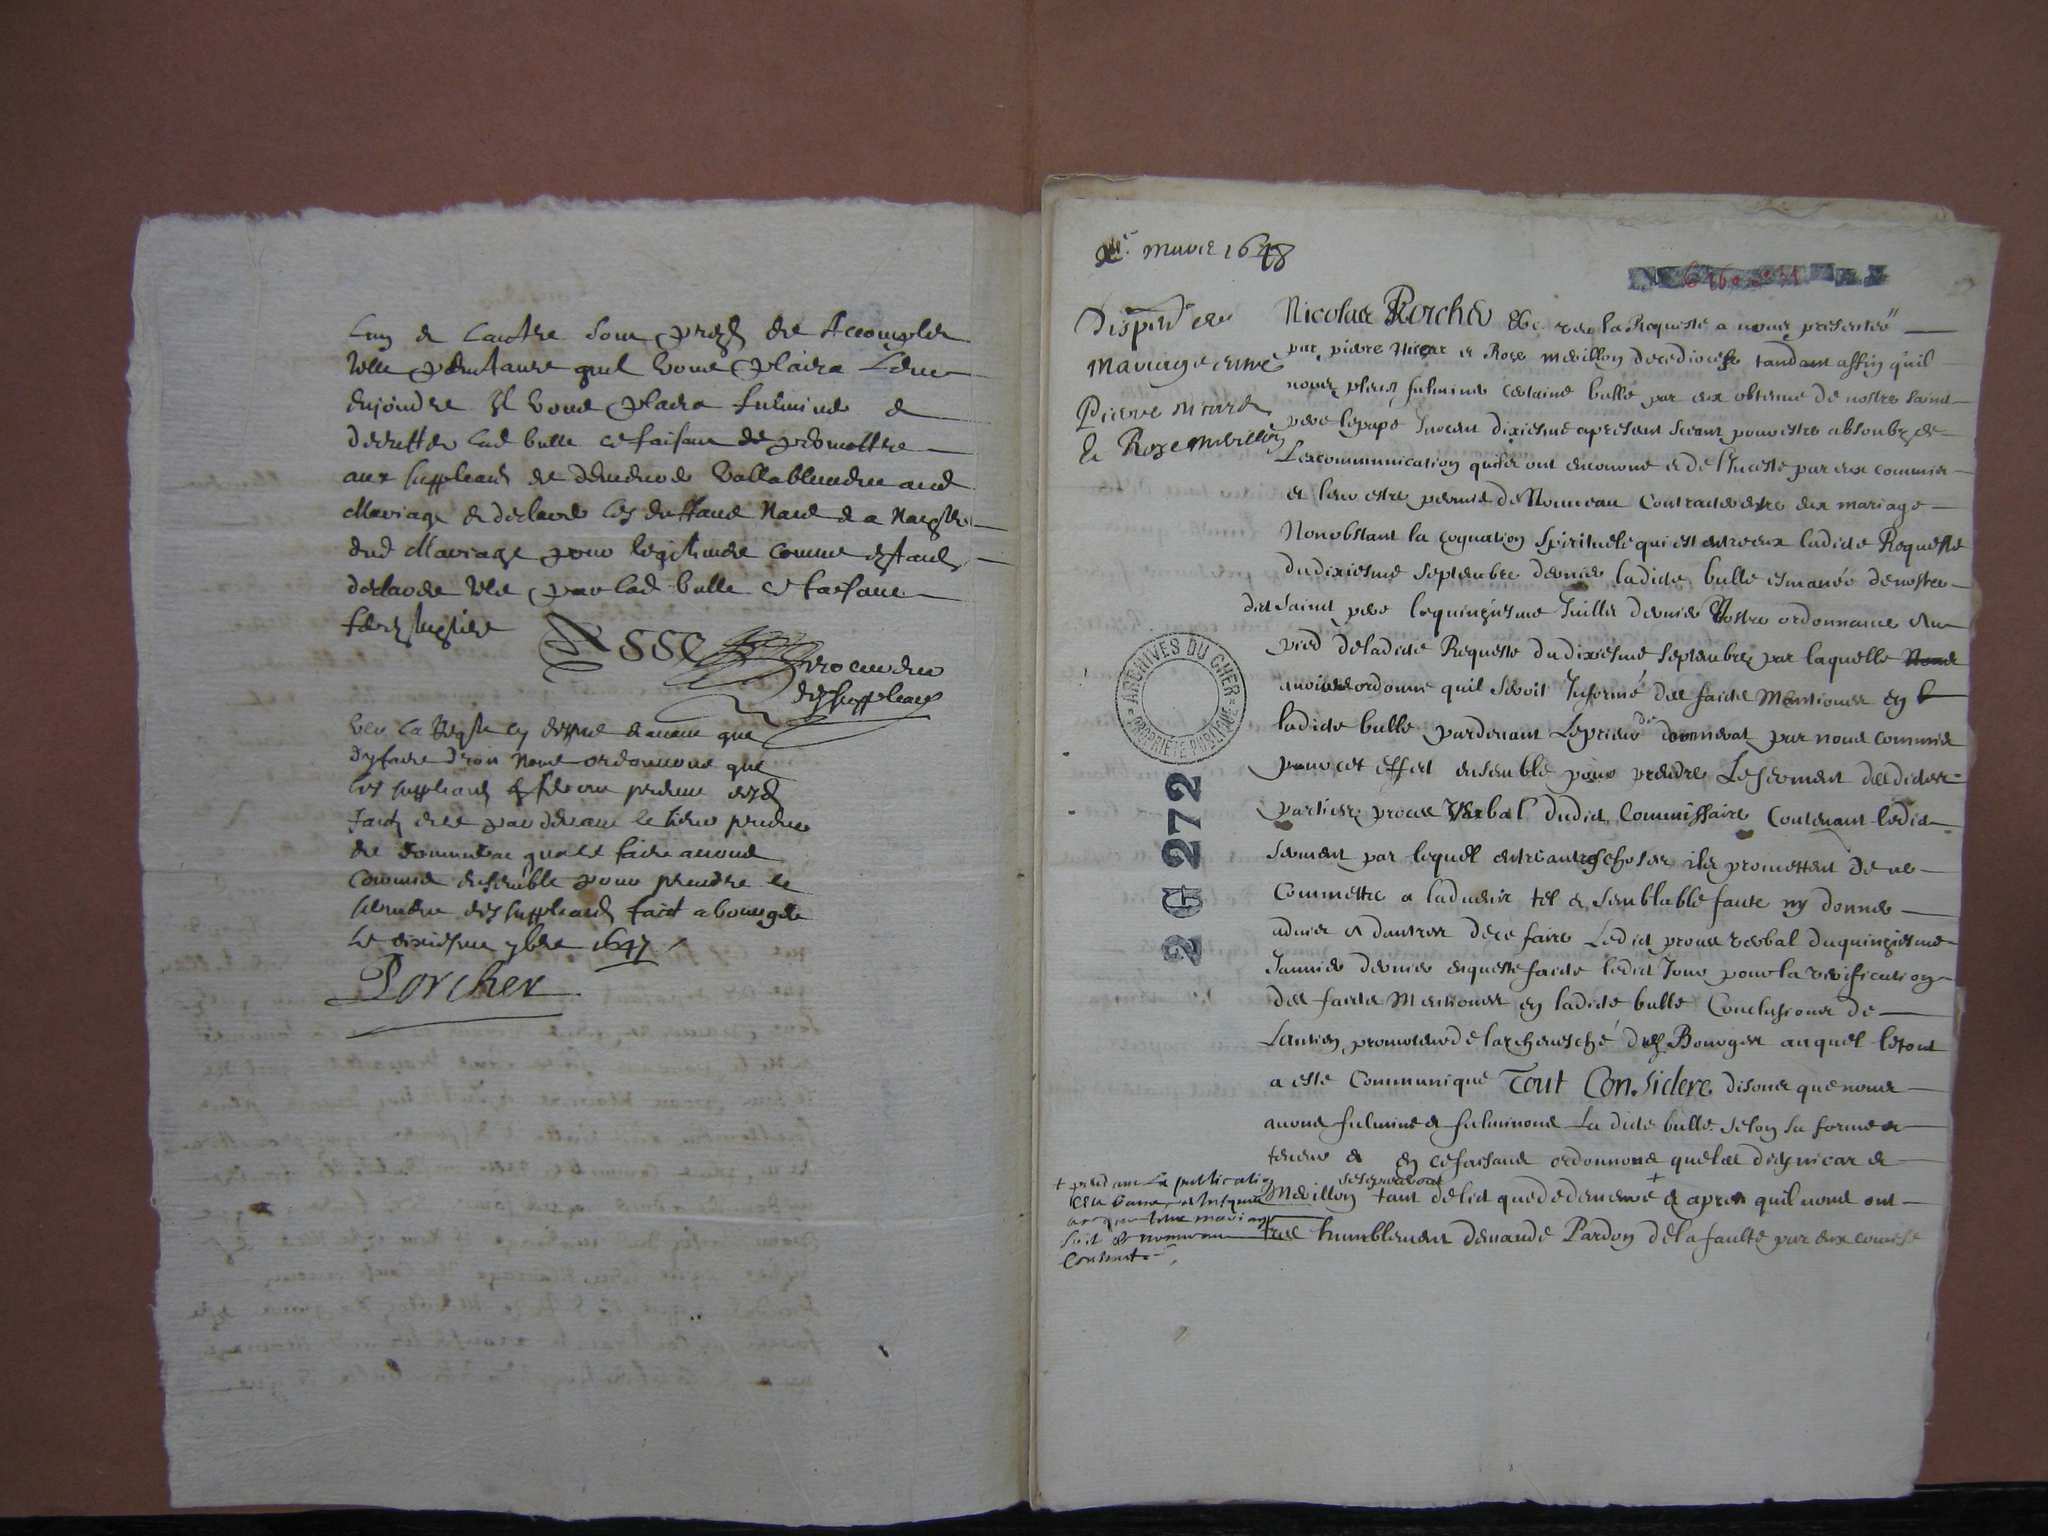 Lun et lautre sont pretz de Accomplir
telle penitance quil vous plaira Leur
enjoindre Il vous plaise fulminer et
decretter lad bulle ce faisant de permettre
aux suppleans de demeurer vallablement aud
Mariage et declarer les enffans Nais et a Naistre
dud Mariage pour legitimes comme estant
declarés telz par lad bulle et faisant
ferez justice
Asse procureur
des suppleans
veu la Reqte cy dessus et avant que
dy faire droit Nous ordonnons que
les suppleans feront preuve desd
faitz par devant le sieur prieur
de quacet faire avons
commis ensemble pour prendre le
serment des suppleans faict a bourges
Le dixiesme 7bre 1647
Porcher
mars 1648
Dispense de
Mariage entre
Pierre Nicard
et Roze Merillon
Nicolas Porcher &c veu la Requeste a nous presentée
par pierre Nicar et Roze Merillon de ce diocese tandant affin quil
nous pleust fulminer certaine bulle par eux obtenue de nostre saint
pere le pape Inocent dixiesme apresent seant pour estre absoubz de
Lexcommunication quilz ont encourue et de lInceste par eux commis
et leur estre permis de Nouveau Contracter entre eux mariage
Nonobstant la cognation spirituele qui est entre eux ladicte Requeste
du dixiesme septembre dernier ladicte bulle esmanée de nostre
dict saint pere le quinziesme Juillet dernier Nostre ordonnance au
pied de ladicte Requeste du dixiesme septembre par laquelle Nous
avons ordonné quil seroit Informé des faictz Mentionez en
ladicte bulle pardevant Le prieur de par nous commis
pour cet effect ensemble pour prendre Le serment desdictes
parties proces verbal dudict Commissaire Contenant ledict
serment par lequel entre autres choses ilz promettent de ne
Commettre a ladvenir tel et semblable faute ny donner
advis a dautres de ce faire Ledict proces verbal du quinziesme
Janvier dernier enqueste faicte ledict Jour pour la verification
des faictz Mentionez en ladicte bulle Conclusions de
Lancien promoteur de larchevesché de Bourges auquel le tout
a esté Communiqué Tout Consideré disons que nous
avons fulminé et fulminons Ladicte bulle selon sa forme et
teneur et en ce faisant ordonnons que lesdictz nicar et
Merillon se separeront tant de lict que de demeure + et apres quil nous ont
tres humblement demandé Pardon de la faulte par eux comise
+ pendant la publication
des bans et Jusques
a ce que leur mariage
soit de nouveau
Contracté
ARCHIVES DU CHER
PROPRIÉTÉ PUBLIQUE
2 G 272